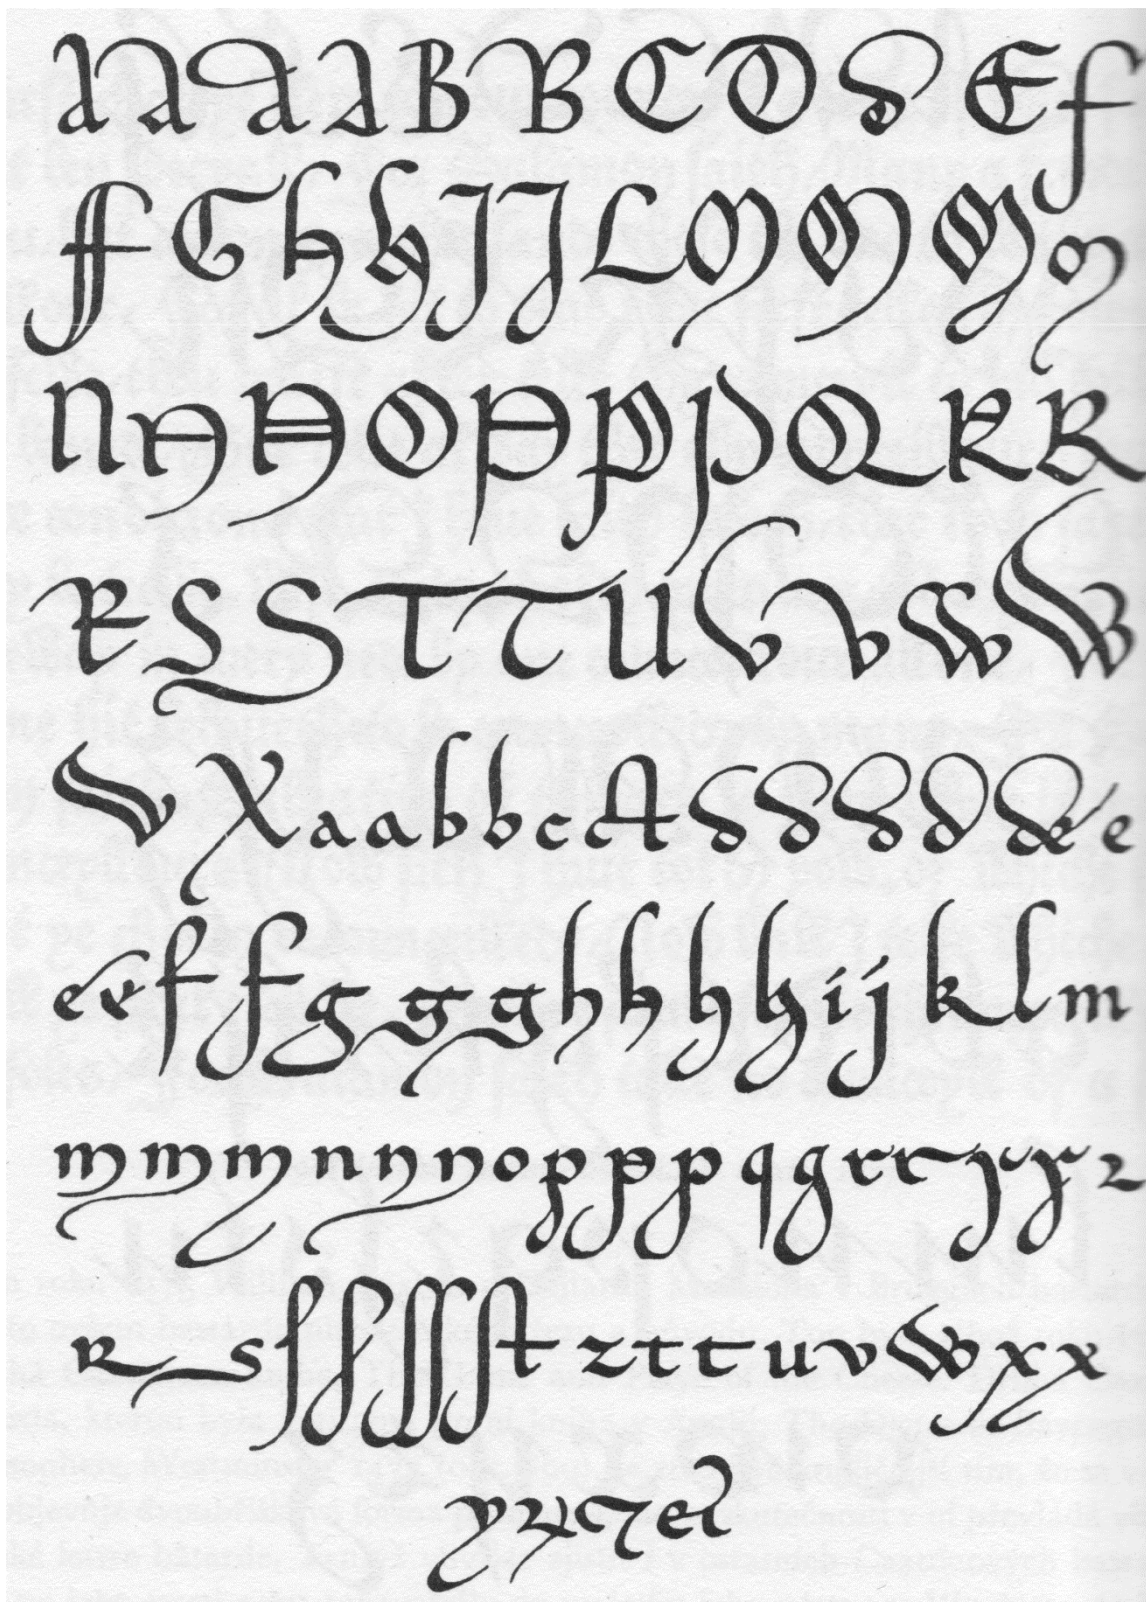 A A A A B B C D D E F
F G H H I J L M M M M
N N H O P P P Q R R
R S S T T U V V W W
V X a a b b c ct d d d d de e
e e f f g g g h h h h i j k l m
m m m n n n o p p p q g r r y y z
R s ſ ſ ſſ ſt z t t u v w x x
y